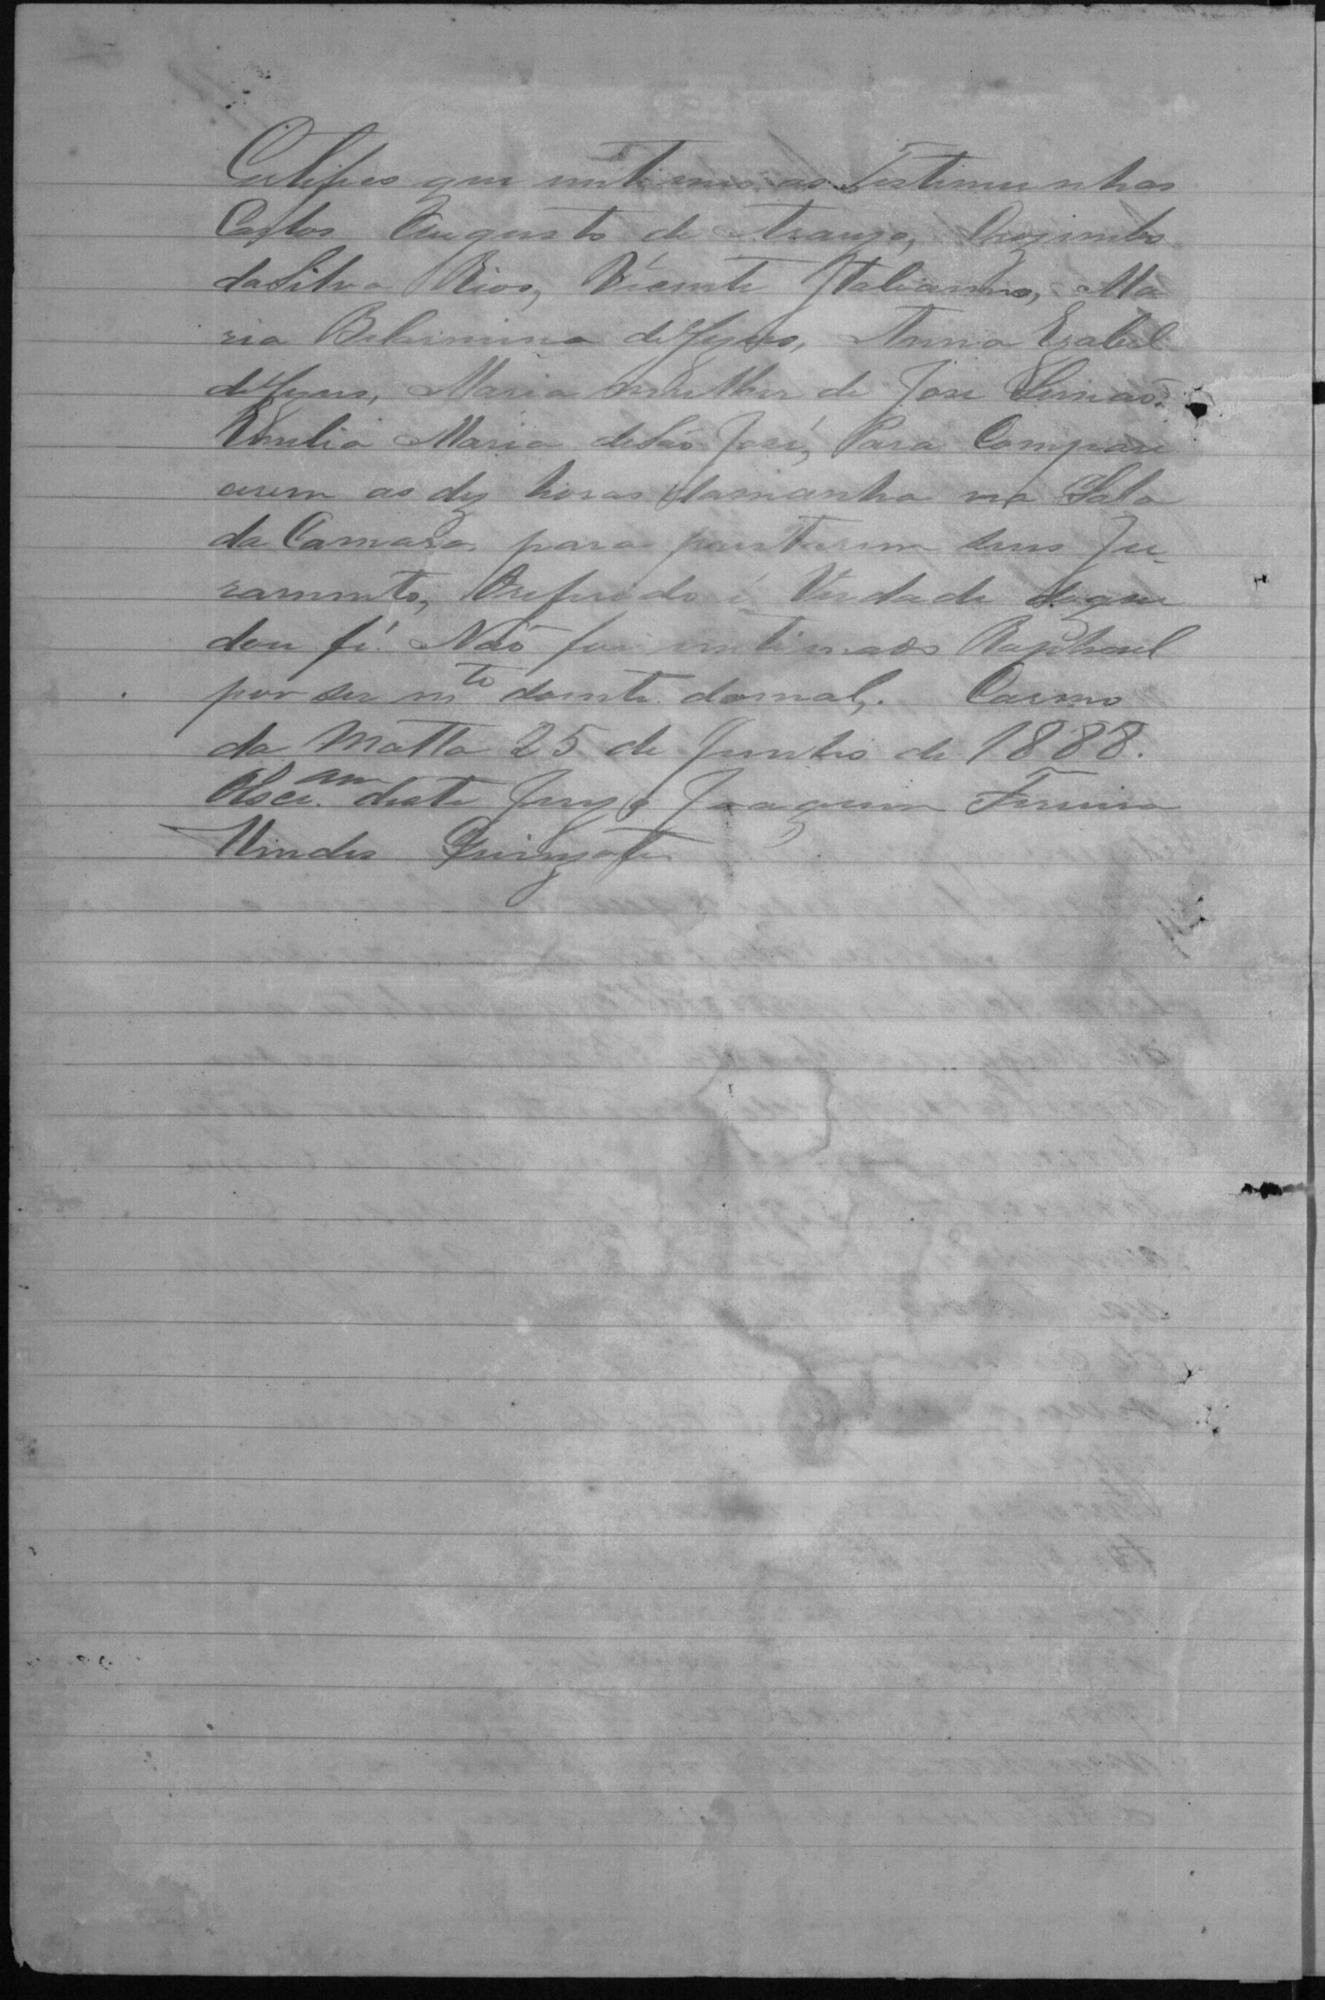 Certifico que intimei as Testimunhas
Carlos Augusto de Araujo, Orozimbo
da Silva Rios, Vicente Italianno, Ma
ria Belarmina de Jesus, Anna Izabel
de Jesus, Maria mulher de José Simão,
Emilia Maria de São José, Para Compare
cerem as dez horas damanha na Sala
da Camara para prestarem seus Ju-
ramento, Oreferido é Verdade doque
dou fé. Não foi intimado Raphael
por ser mto doente domal,. Carmo
da Matta 25 de Junho de 1888.
deste Juizo Joaquim Ferreira
Mendes